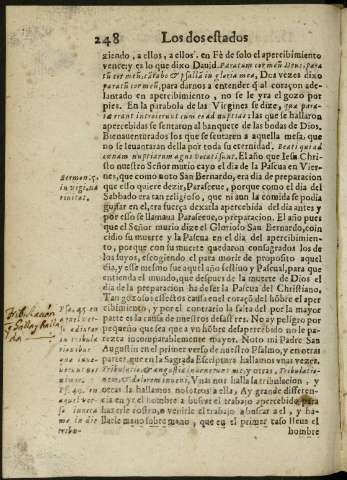 248 Los dos estados
ziendo, a ellos, a ellos. en Fè de solo el apercibimiento
vence; y es lo que dixo Dauid. Paratum cor meũ Deus, para
tũ cor meũ, cãtabo & psallã in gloria mea, Dos vezes dixo
paratũ cor meũ, para darnos a entender q̃ al coraçon ade-
lantado en apercibimiento, no se le yra el gozo por
pies. En la parabola de las Virgines se dize, quæ para-
tæ erant introierunt cum eo ad nuptias: las que se hallaron
apercebidas se sentaron al banquete de las bodas de Dios.
Bienauenturados los que se sentaren a aquella mesa, que
no se leuantaràn della por toda su eternidad. Beati qui ad
cænam nuptiarum agni vocati sunt. El año que Iesu Chri-
sto nuestro Señor murio cayo el dia de la Pascua en Vier-
nes, que como noto San Bernardo, era dia de preparacion
que esso quiere dezir, Parasceue, porque como el dia del
Sabbado era tan religioso, que ni aun la comida se podia
guisar en el, era fuerça dexarla apercebida del dia antes y
por esso se llamaua Parasceue, o preparacion. El año pues
que el Señor murio dize el Glorioso San Bernardo, coin
cidio su muerte y la Pascua en el dia del apercibimien-
to, porque con su muerte quedaron consagrados los de
los suyos, escogiendo el para morir de proposito aquel
dia, y esse mismo fue aquel año festiuo y Pascual, para que
entienda el mundo, que despues de la muerte de Dios el
dia de la preparacion ha de ser la Pascua del Christiano.
Tan gozosos efectos causa en el coraçõ del hõbre el aper
cibimiento, y por el contrario la falta del por la mayor
parte es la causa de nuestros desastres. No ay peligro por
pequeño que sea que a vn hõbre desapercebido no le pa-
rezca incomparablemente mayor. Noto mi Padre San
Augustin en el primer verso de nuestro Psalmo, y en otras
partes, que en la Sagrada Escriptura hallamos vnas vezes.
Tribulatio, & angustia inuenerunt me; y otras, Tribulatio-
nem, & dolorem inueni, Vnas nos halla la tribulacion, y
otras la hallamos nosotros a ella, Ay grande differen-
cia en yr el hombre a buscar el trabajo apercebido para
hazerle rostro, o venirle el trabajo a buscar a el, y ha-
llarle mano sobre mano, que en el primer caso lleua el
hombre
Sermon. 5.
in vigi. na
tiuitas.
Psa. 45. en
aquel ver-
so, adiutor
in tribula
tionibus
Psa. 49. en
aquel ver-
so inuoca
me in die
tribu-